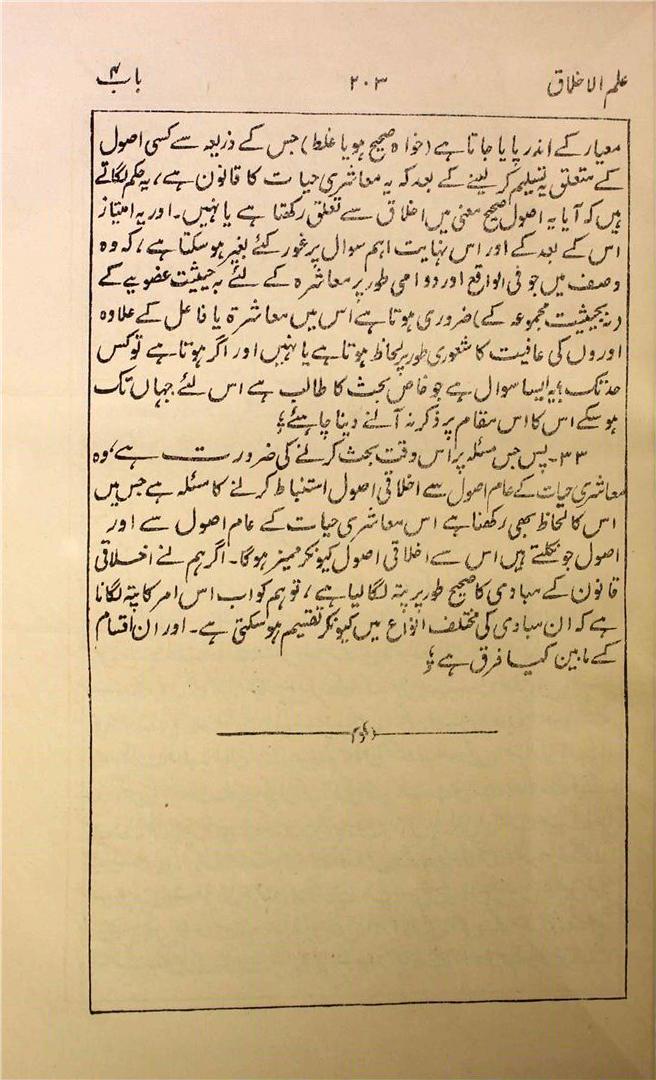 علم الاخلاق ۲۰۳ باب ۴
معیار کے اندر پایا جاتا ہے (خواہ صحیح ہو یا غلط) جس کے ذریعہ سے کسی اصول
کے متعلق یہ تسلیم کر لینے کے بعد کہ یہ معاشری حیات کا قانون ہے، یہ حکم لگاتے
ہیں کہ آیا یہ اصول صحیح معنی میں اخلاق سے تعلق رکھتا ہے یا نہیں۔ اور یہ امتیاز
اس کے بعد کے اور اس نہایت اہم سوال پر غور کئے بغیر ہو سکتا ہے، کہ وہ
وصف میں جو فی الواقع اور دوامی طور پر معاشرہ کے لئے بہ حیثیت عضویے کے
(نہ بحیثیت مجموعہ کے) ضروری ہوتا ہے اس میں معاشرۃ یا فاعل کے علاوہ
اوروں کی عافیت کا شعوری طور پر لحاظ ہوتا ہے یا نہیں اور اگر ہوتا ہے تو کس
حد تک؟ یہ ایسا سوال ہے جو خاص بحث کا طالب ہے اس لئے جہاں تک
ہو سکے اس کا اس مقام پر ذکر نہ آنے دینا چاہئے؛
۳۳۔ پس جس مسئلہ پر اس وقت بحث کرنے کی ضرورت ہے، وہ
معاشری حیات کے عام اصول سے اخلاقی اصول استنباط کرنے کا مسئلہ ہے جس میں
اس کا لحاظ بھی رکھنا ہے اس معاشری حیات کے عام اصول سے اور
اصول جو نکلتے ہیں اس سے اخلاقی اصول کیونکر ممیز ہو گا۔ اگر ہم نے اخلاقی
قانون کے مبادی کا صحیح طور پر پتہ لگا لیا ہے، تو ہم کو اب اس امر کا پتہ لگانا
ہے کہ ان مبادی کی مختلف انواع میں کیونکر تقسیم ہو سکتی ہے۔ اور ان اقسام
کے مابین کیا فرق ہے؛